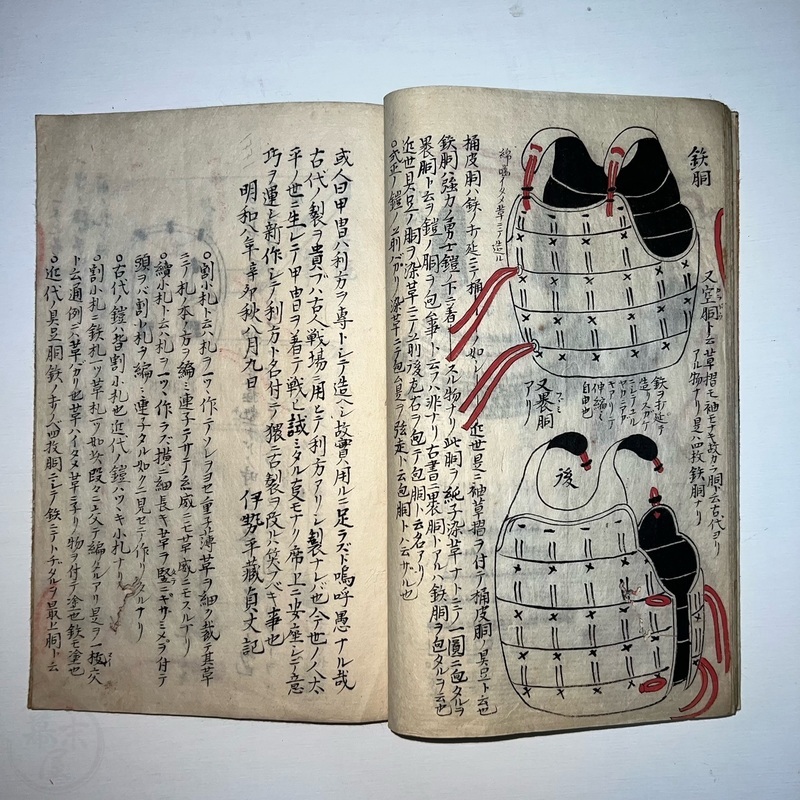 鉄胴
又空胴ト云草摺モ袖モナキ故カラ胴ト云古代ヨリ
アル物ナリ是ハ四枚鉄胴ナリ
鉄ヲ打延テ
造リスカケ
ニシテユル
ヤカニテク
キアリテ
伸縮ミ
自由也
又裹胴
アリ
後
桶皮胴ハ鉄ノ打延ニテ桶ノ如シ近世是ニ袖草摺ヲ付テ桶皮胴ノ具足ト云也
鉄胴ハ強力ノ勇士鎧ノ下ニ着スル物ナリ此胴ヲ純子染草ナトニテ一圓ニ包タルヲ
裹胴ト云ヲ鎧ノ胴ヲ包事ト云ハ非ナリ古書ニ裹胴トアルハ鉄胴ヲ包タルヲ云也
近世具足ノ胴ヲ染草ニテ前後左右ヲ包テ包胴ト云名アリ
○式正ノ鎧ノ前バカリ染草ニテ包ム是ヲ弦走ト云包胴トハ云ザル也
或人曰甲冑ハ利方ヲ専トシテ造ヘシ故實ハ用ルニ足ラズト嗚呼愚ナル哉
古代ノ製ヲ貴ブハ古人戦場ニ用ヒテ利方アリシ製ナレバ也今世ノ人太
平ノ世ニ生レテ甲冑ヲ着テ戦ヒ試ミタル事モナク席上ニ安座シテ意
巧ヲ運シ新作シテ利方ト名付テ猥ニ古製ヲ改ルハ笑フベキ事也
明和八年辛卯秋八月九日 伊勢平蔵貞丈記
○割小札ト云ハ札ヲ一ツヽ作テソレヲヨセ重子薄草ヲ細ク裁テ其草
ニテ札ノ本ノ方ヲ編ミ連子テサテ糸威ニモ草威ニモスルナリ
○續小札ト云ハ札ヲ一ツヽ作ラズ横ニ細長キ草ヲ竪ニギザミメヲ付テ
頭ヲバ割小札ヲ編ミ連子タル如クニ見セテ作リタルナリ
○古代ノ鎧ハ皆割小札也近代ノ鎧ハツヾキ小札ナリ
○割小札ニ鉄札一ツ草札一ツ如此段々ニ交テ編タルアリ是ヲ一枚交
ト云通例ニハ草バカリ也草ハイタメ草ニ子リ物ヲ付テ塗也鉄モ塗也
○近代ノ具足胴鉄ノキリ八四枚胴ニシテ鉄ニテトヂタルヲ最上胴ト云